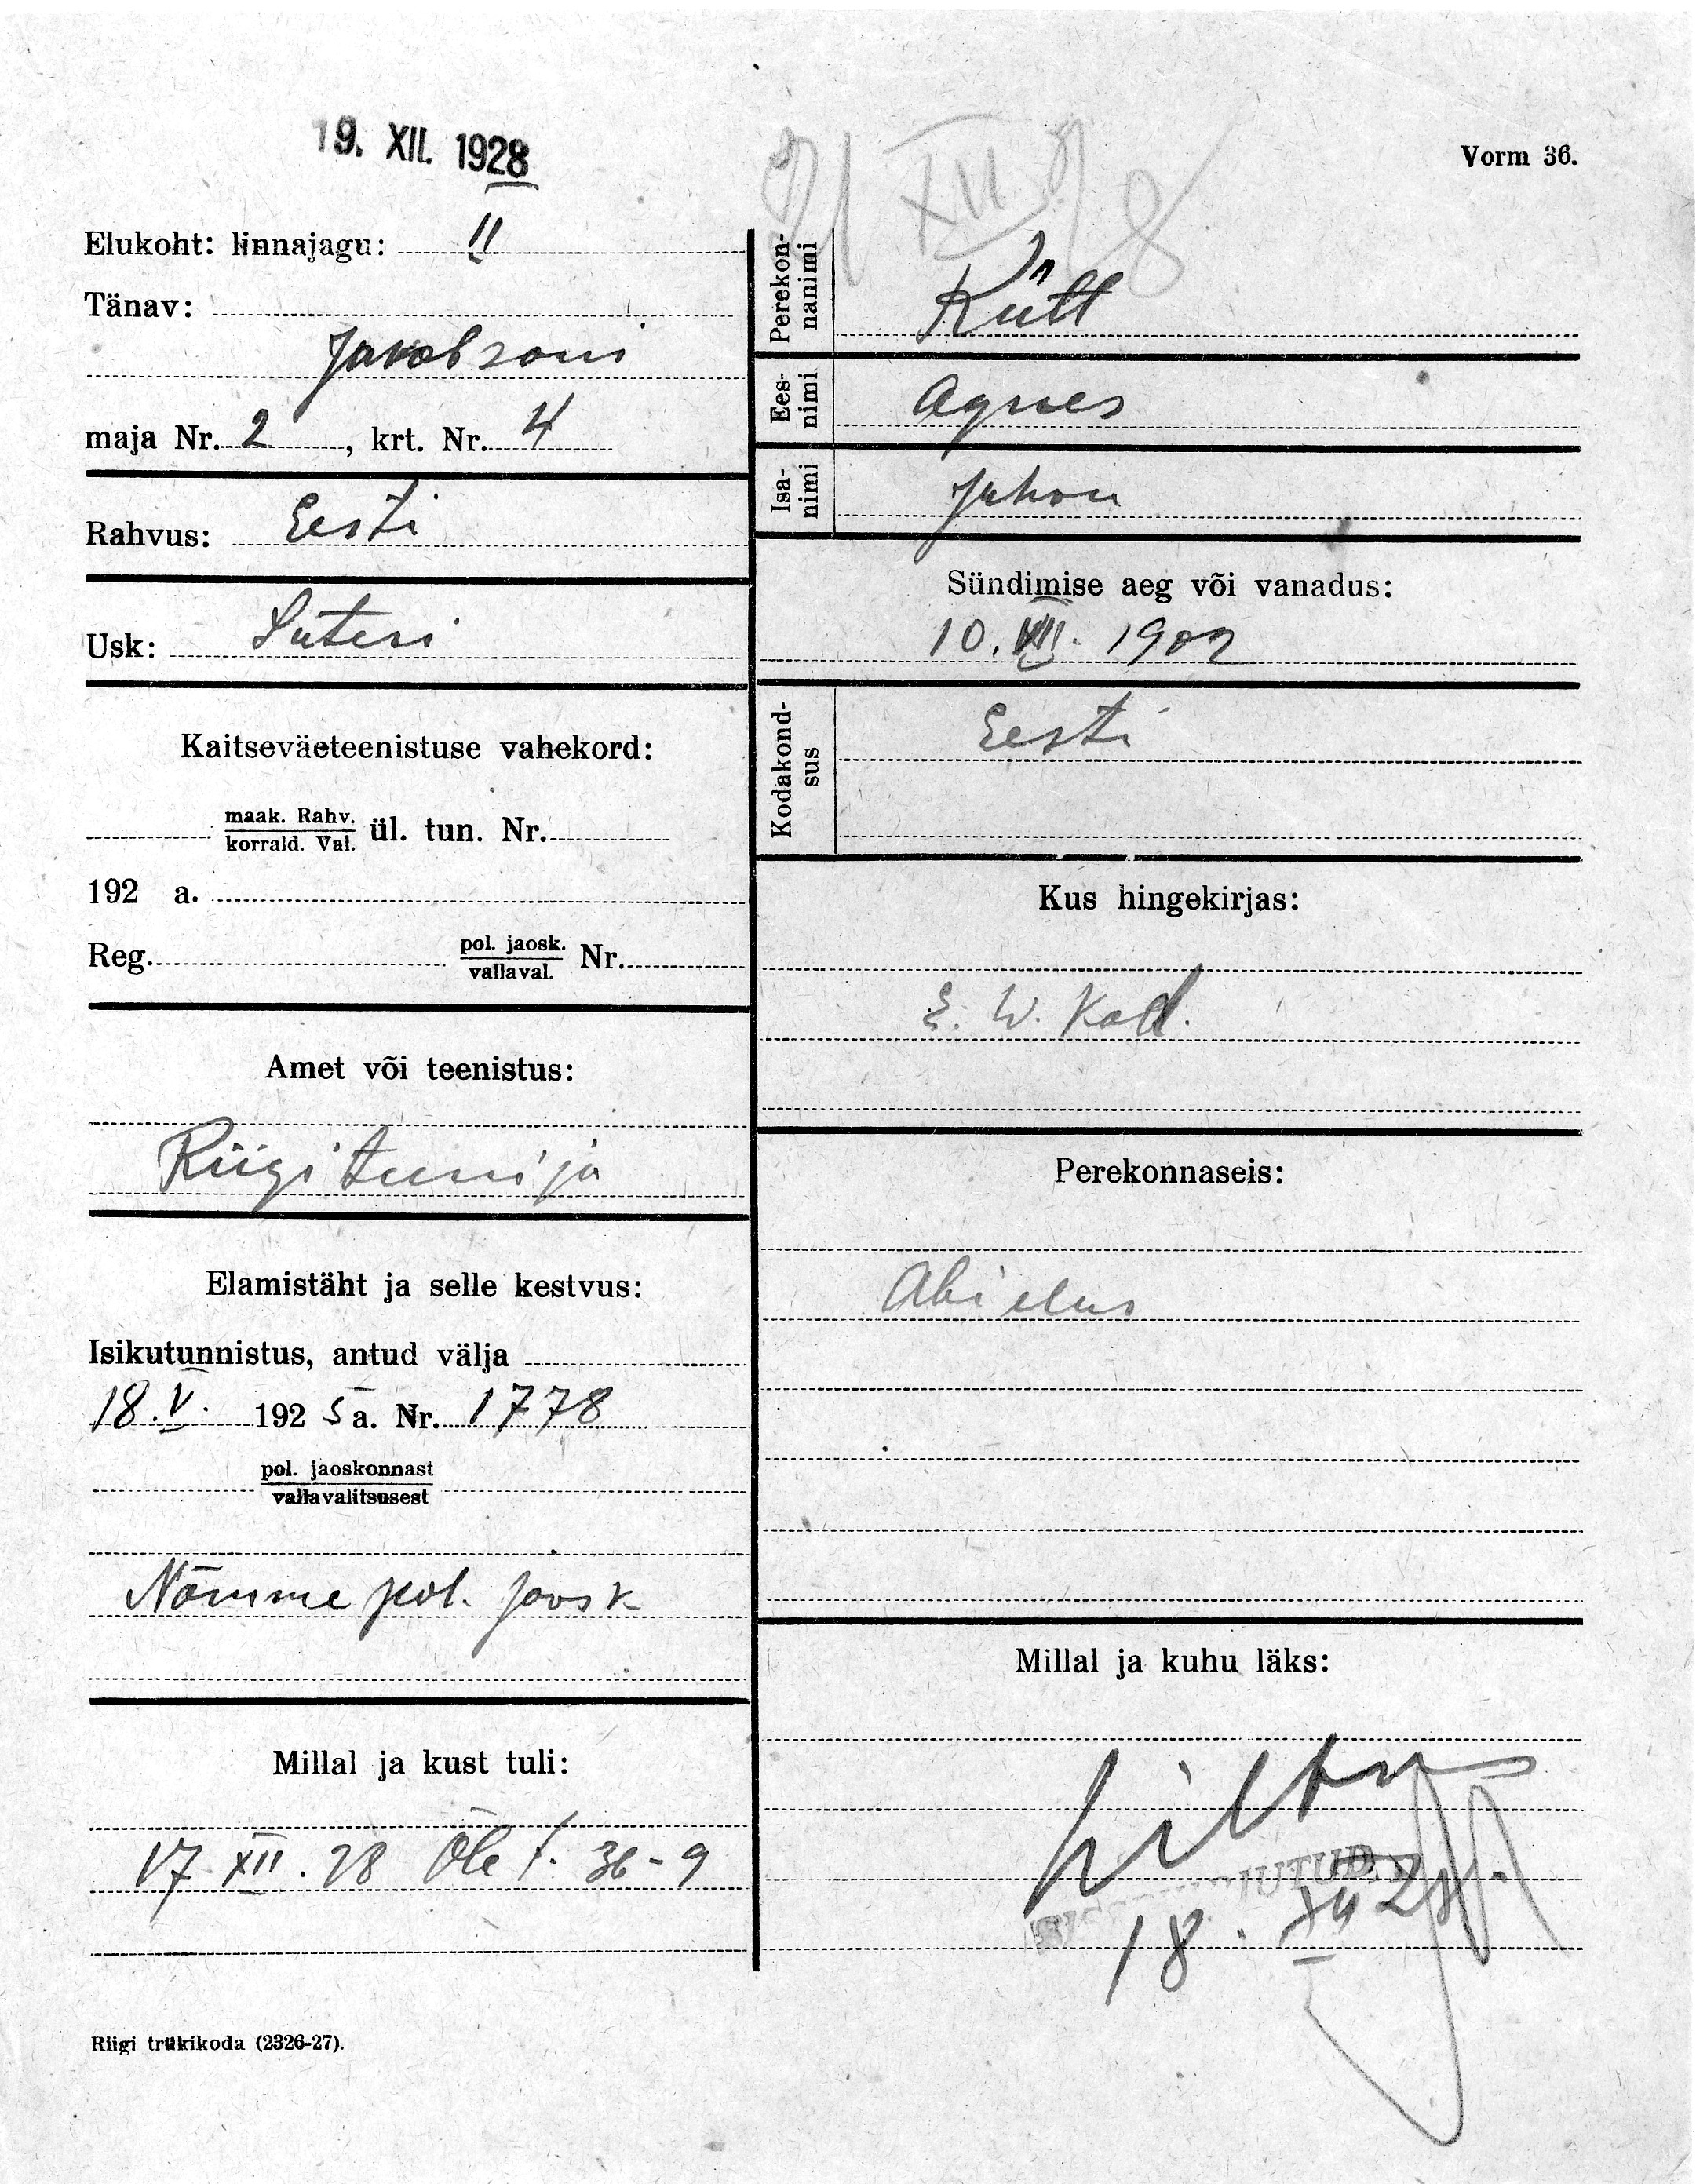 19. XII. 1928
21 XII 28
Vorm 36.
Elukoht: linnajagu: II
Tänav:
Jakobsoni
maja Nr. 2, krt. Nr. 4
Rahvus: Eesti
Usk: Luteri
Kaitseväeteenistuse vahekord:
maak. Rahv.
korrald. Val. ül. tun. Nr.
192 a.
Reg. pol. jaosk. Nr.
vallaval.
Amet või teenistus:
Riigi teenija
Elamistäht ja selle kestvus:
Isikutunnistus, antud välja
18. V. 192 5 a. Nr. 1778
pol. jaoskonnast
vallavalitsusest
Nõmme pol. jaosk
Millal ja kust tuli:
17 XII. 28 Õle t. 36-9
Riigi trükikoda (2326-27).
Perekon-
nanimi
Rütt
Ees-
nimi
Agnes
Isa-
nimi
Juhan
Sündimise aeg või vanadus:
10. XII. 1902
Kodakond-
sus
Eesti
Kus hingekirjas:
E. W. Kod.
Perekonnaseis:
Abielus
Millal ja kuhu läks:
18. XII 28